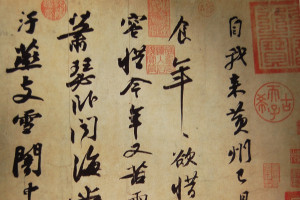 自我來黃州已過
食年〻欲惜
容惜今年又苦雨
蕭瑟卧聞海棠
汙燕支雪闇中